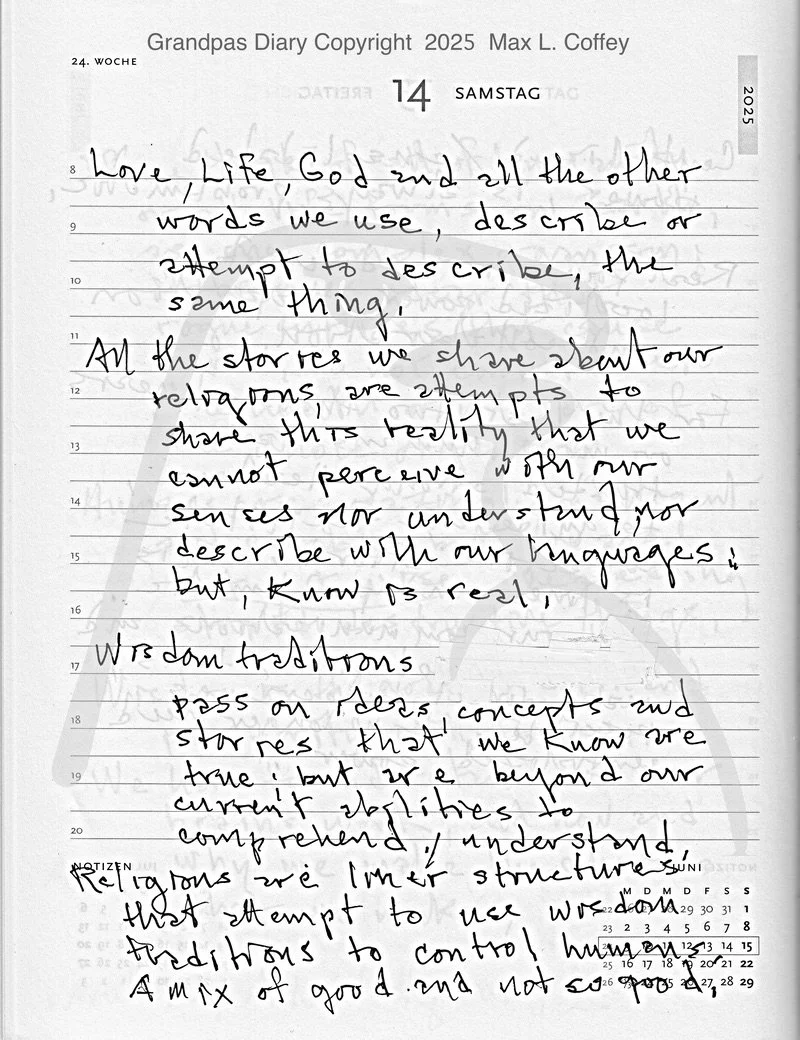 Grandpas Diary Copyright 2025 Max L. Coffey
24. WOCHE
14 SAMSTAG
2025
8 Love, Life, God and all the other
9 words we use, describe or
attempt to describe, the
10 same thing.
11 All the stories we share about our
12 religions, are attempts to
share this reality that we
13 cannot perceive with our
14 senses nor understand, nor
15 describe with our languages;
but, know is real.
16
17 Wisdom traditions
pass on ideas, concepts and
18 stories that we know are
19 true; but are beyond our
current abilities to
20 comprehend / understand.
NOTIZEN
JUNI
Religions are linear structures,
that attempt to use wisdom
traditions to control humans.
A mix of good and not so good;
M D M D F S S
22 29 30 31 1
23 2 3 4 5 6 7 8
12 13 14 15
25 16 17 18 19 20 21 22
26 27 28 29